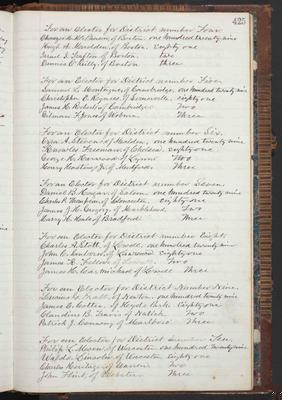 425
For an Elector for District number Four
of Boston one hundred twenty nine
Hugh A. Madden of Boston eighty one
Israel J. Trafton of Boston
Dennis O'Reilly of Boston Three
For an Elector for District number Five
Samuel L. Montague of Cambridge, one hundred twenty nine
Christopher E. Rymes of Somerville eighty one
James H. Roberts of Cambridge Two
Gilman F. Jones of Woburn Three
For an Elector for District number Six
Ezra A. Stevens of Malden, one hundred twenty nine
Freeman of Chelsea eighty one
George H. Harwood of Lynn Two
Henry Hastings Jr of Medford Three
For an Elector for District number Seven
Daniel B. of Salem, one hundred twenty nine
Charles P. Thompson of Gloucester, eighty one
James J. H. Gregory of Marblehead Two
Harry H. Hale of Bradford Three
For an Elector for District number Eight
Charles A. Stott of Lowell one hundred twenty nine
John C. Sanborn of Lawrence eighty one
James K. Fellows of Lowell Two
James H. Carmichael of Lowell Three
For an Elector for District Number Nine
Pratt of Newton, one hundred twenty nine
James A. Cotter of Hyde Park Eighty one
Claudius B. Travis of Natick Two
Patrick J. Conway of Marlboro Three
For an Elector for District number Ten
Philip L. Moen of Worcester one hundred twenty nine
Waldo Lincoln of Worcester eighty one
Charles of Warren Two
John Flint of Three